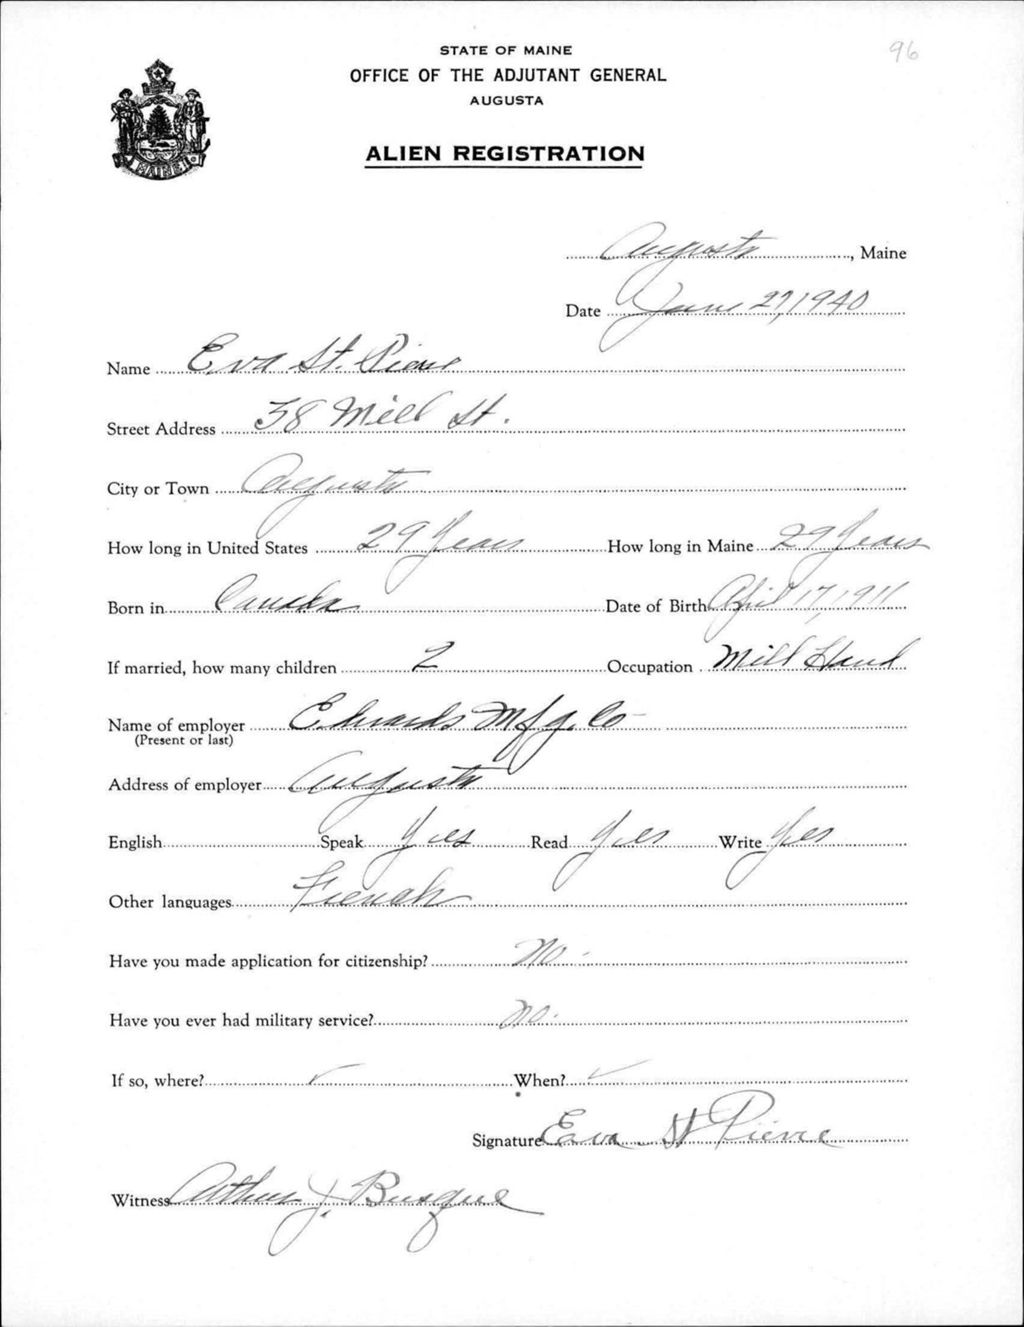 96
STATE OF MAINE
OFFICE OF THE ADJUTANT GENERAL
AUGUSTA
ALIEN REGISTRATION
MAINE
Augusta, Maine
Date June 27, 1940
Name Eva St. Pierre
Street Address 38 Mill St.
City or Town Augusta
How long in United States 29 Years How long in Maine 29 Years
Born in Canada Date of Birth April 17, 1911
If married, how many children 2 Occupation Mill Hand
Name of employer Edwards Mfg. Co
(Present or last)
Address of employer Augusta
English Speak Yes Read Yes Write Yes
Other languages French
Have you made application for citizenship? No
Have you ever had military service? No.
If so, where? ✓ When? ✓
Signature Eva St Pierre
Witness Arthur J. Busque